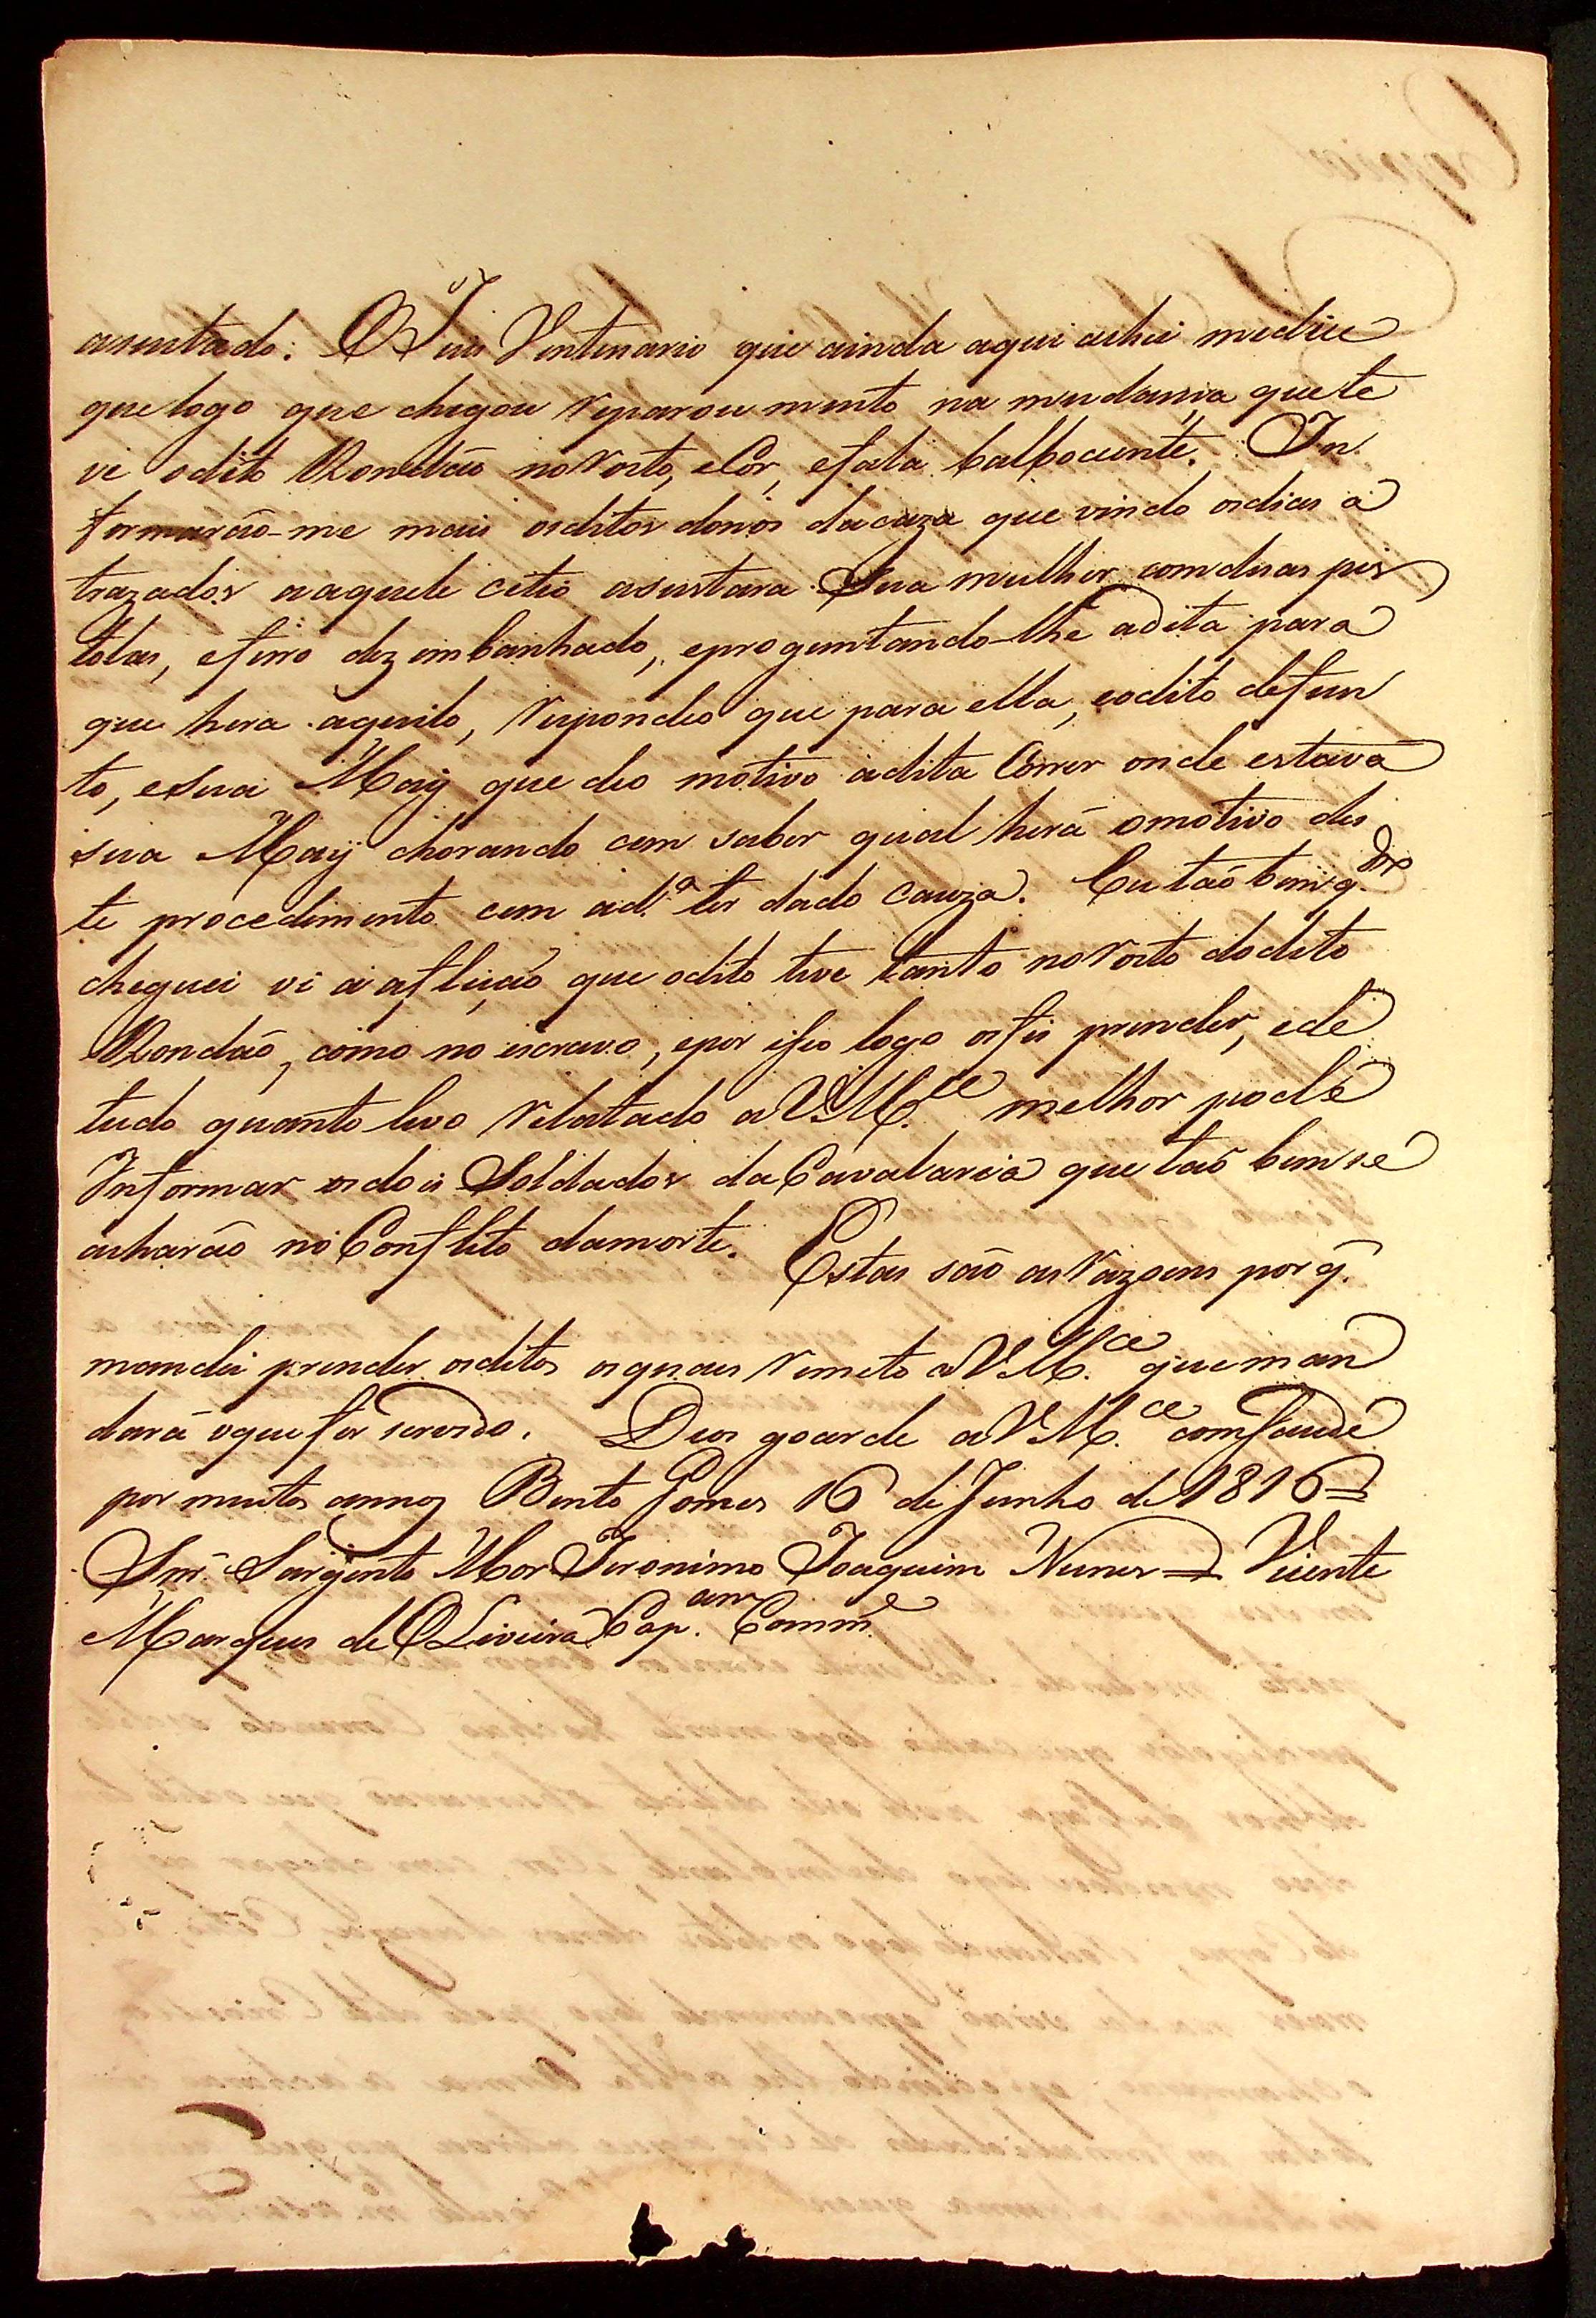 asentado. O Juis Ventenario que ainda aqui achei medice
que logo que chegou reparou muito na mudansa que te
ve odito Rondão no rosto, eCor, efala balbociente. In
formarão-me mais osditos donos dacaza que vindo osdias a
trazados aaquele citio asustara Sua mulher com duas pis
tolas, eferro dezimbanhado, eproguntando-lhe adita para
que hera aquilo, respondeo que para ella, eodito defun
to, esua Maÿ que deo motivo adita Córrer onde estava
sua Maÿ chorando cem saber qual herá omotivo des
te procedimento cem ad.ª ter dado cauza. Eu taõ bem q.do
cheguei vi a aflição que odito teve tanto no rosto dodito
Rondão, como no escravo, epor iso logo osfis prender, ede
tudo quanto levo relatado a VM.ce melhor pode
Informar osdois Soldados da Cavalaria que taõ bem se
acharão no Conflito damorte. Estas são as razoens por q.
mandei prender osditos osquais remeto a VM.ce que man
dará oque for servido. Deos goarde a VM.ce com saude
por muitos annos Bento Gomes 16 de Junho de 1816 =
Snr. Sargento Mor Jeronimo Joaquim Nunes = Vicente
Marques de OLiveira Cap.am Comm.e